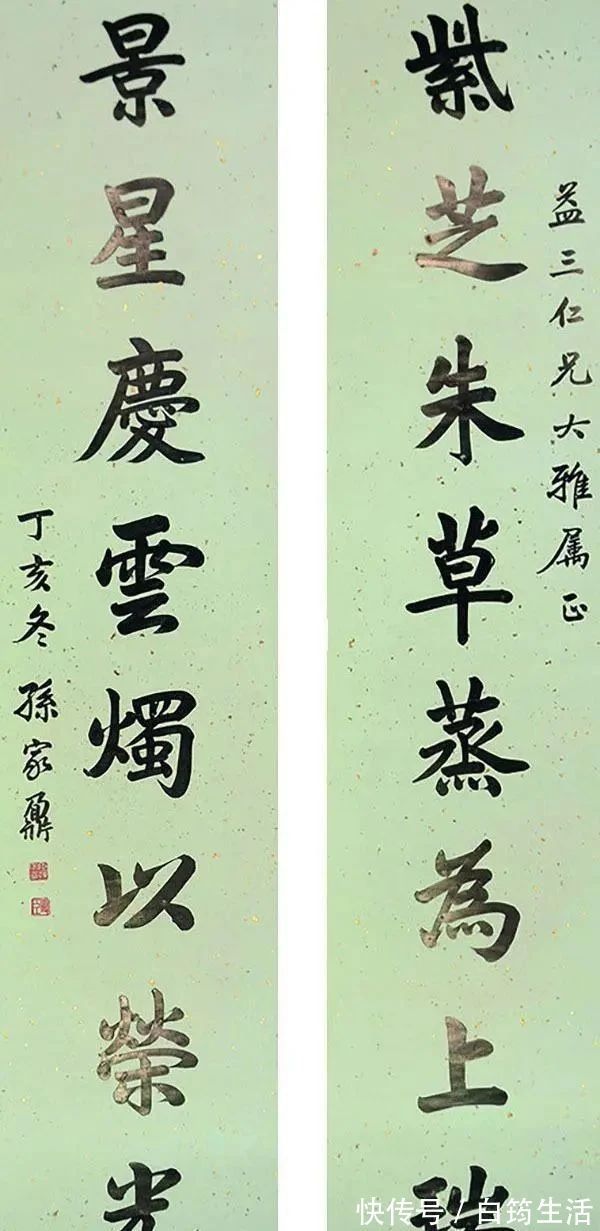 益三仁兄大雅属正
紫芝朱草蒸為上瑞
景星慶雲燭以榮光
丁亥冬孫家鼐
快传号/白筠生活